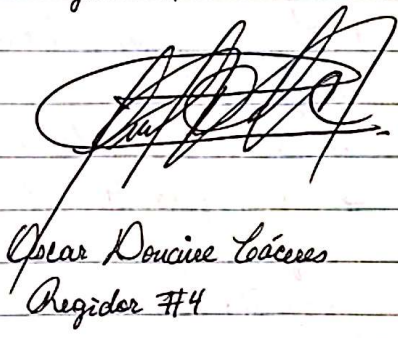 Oscar Doncire Cáceres
Regidor #4